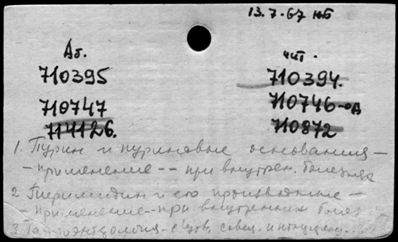 13.7.67 нб
Аб. чит
710395 710394.
710747 710746-од
714126. 710872
1. Пурин и пуриновые основания -
- применение -- при внутрен. болезнях
2 Пиримидин и его производные -
- применение - при внутренних болез
3